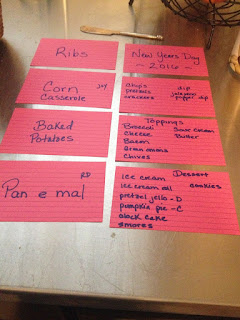 Ribs
New Years Day
- 2016 -
Corn
Casserole
Joy
chips
pretzels
crackers
dip
jalapeno
popper dip
Baked
Potatoes
Toppings
Broccoli
cheese
Bacon
chives
Sour cream
Butter
Pan e mal
RD
ice cream
Dessert
cookies
pretzel jello - D
pumpkin pie - C
black cake
smores